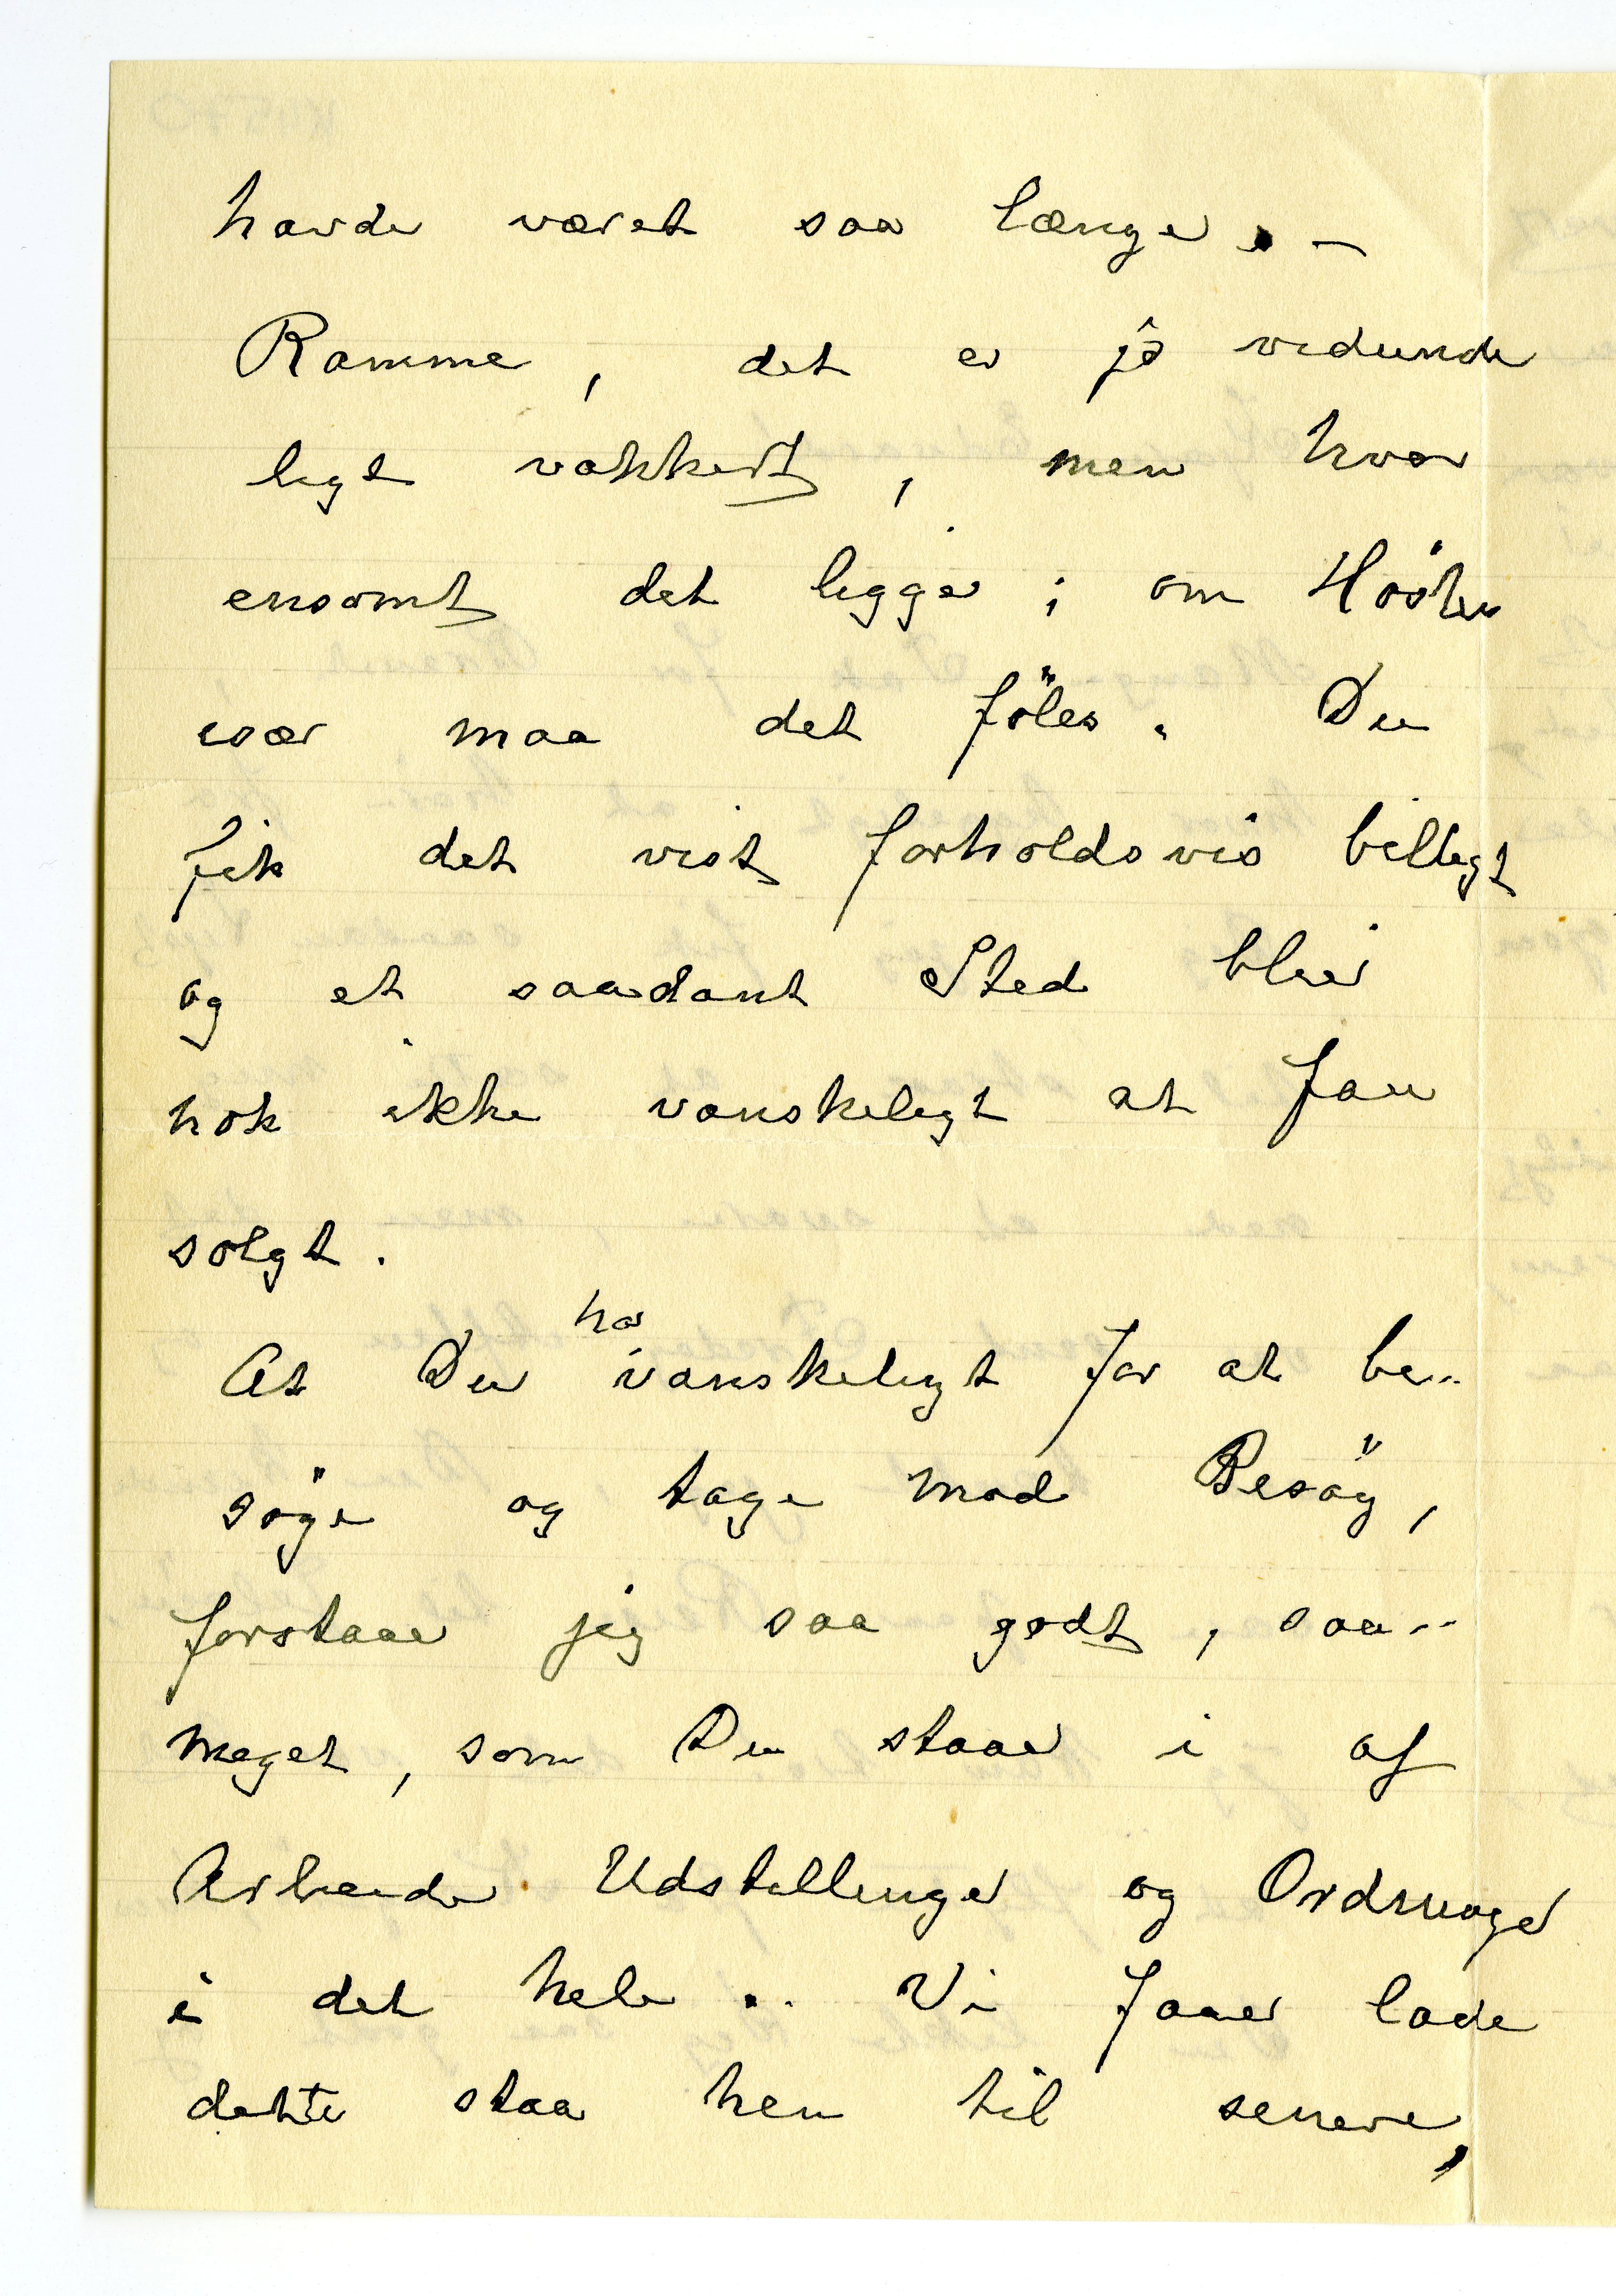 havde været saa længe. –
Ramme, det er jo vedunder
ligt vakkert, men hvor
ensomt det ligger; om Hösten
især maa det föles. Du
fik det vist forholdsvis billigt
og et saadant Sted blir
nok ikke vanskeligt at faa
solgt.
har
At Du vanskeligt for at be-
söge og tage mod Besög,
forstaar jeg saa godt, saa-
meget, som Du staar i af
Arbeide. Udstillinger og Ordninger
i det hele. Vi faar lade
dette staa hen til senere,